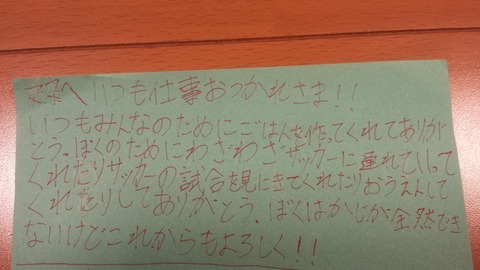 ママへいつも仕事おつかれさま!!
いつもみんなのためにごはんを作ってくれてありが
とう。ぼくのためにわざわざサッカーに連れていって
くれたりサッカーの試合を見にきてくれたりおうえんして
くれたりしてありがとう。ぼくはかじが全然でき
ないけどこれからもよろしく!!